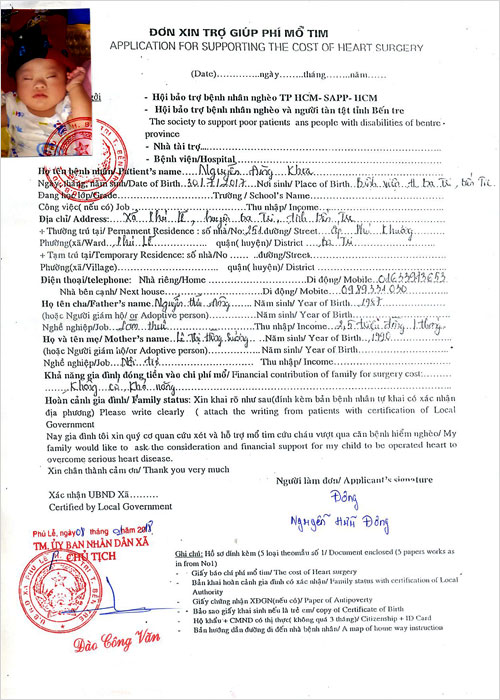 ĐƠN XIN TRỢ GIÚP PHÍ MỔ TIM
APPLICATION FOR SUPPORTING THE COST OF HEART SURGERY
(Date)..............ngày........tháng........năm......
- Hội bảo trợ bệnh nhân nghèo TP HCM- SAPP- HCM
- Hội bảo trợ bệnh nhân nghèo và người tàn tật tỉnh Bến tre
The society to support poor patients ans people with disabilities of bentre - province
- Nhà tài trợ....
- Bệnh viện/Hospital
Họ tên bệnh nhân/Patient's name Nguyễn Đăng Khoa
Ngày, tháng, năm sinh/Date of Birth 30/7/2017 Nơi sinh/ Place of Birth Bệnh viện H. Ba Tri, Bến Tre
Đang học lớp/Grade Trường / School's Name
Công việc( nếu có) Job Thu nhập/ Income
Địa chỉ/ Address: Xã Phú Lễ, huyện Ba Tri, tỉnh Bến Tre
+ Thường trú tại/ Pernament Residence : số nhà/No: 251 đường/ Street Ấp Phú Khương
Phường(xã/Ward Phú Lễ quận( huyện)/ District Ba Tri
+ Tạm trú tại/Temporary Residence: số nhà/No ...... đường/Street
Phường(xã/Village) quận( huyện)/ District
Điện thoại/telephone: Nhà riêng/Home Di động/ Mobile 01633943653
Nhà bên cạnh/ Next house Di động/ Mobile 0989331030
Họ tên cha/Father's name Nguyễn Hữu Đông Năm sinh/ Year of Birth 1987
(hoặc Người giám hộ/ or Adoptive person) Năm sinh/ Year of Birth
Nghề nghiệp/Job Làm thuê Thu nhập/ Income 2,5 triệu đồng / tháng
Họ và tên mẹ/ Mother's name Lê Thị Hồng Sương Năm sinh/ Year of Birth 1990
(hoặc Người giám hộ/or Adoptive person) Năm sinh/ Year of Birth
Nghề nghiệp/Job Nội trợ Thu nhập/ Income
Khả năng gia đình đóng tiền vào chi phí mổ/ Financial contribution of family for surgery cost:
Không có khả năng
Hoàn cảnh gia đình/ Family status: Xin khai rõ như sau(đính kèm bản bệnh nhân tự khai có xác nhận
địa phương) Please write clearly ( attach the writing from patients with certification of Local
Government
Nay gia đình tôi xin quý cơ quan cứu xét và hỗ trợ mổ tim cứu cháu vượt qua căn bệnh hiểm nghèo/ My
family would like to ask the consideration and financial support for my child to be operated heart to
overcome serious heart disease.
Xin chân thành cảm ơn/ Thank you very much
Người làm đơn/ Applicant's signature
Xác nhận UBND Xã.........
Certified by Local Government
Đông
Nguyễn Hữu Đông
Phú Lễ, ngày 08 tháng năm 2018
TM. ỦY BAN NHÂN DÂN XÃ
CHỦ TỊCH
Đào Công Văn
Ghi chú: Hồ sơ đính kèm (5 loại theo mẫu số 1/ Document enclosed (5 papers works as
in from No1)
- Giấy báo chi phí mổ tim/ The cost of Heart surgery
- Bản khai hoàn cảnh gia đình có xác nhận/ Family status with certification of Local
Authority
- Giấy chứng nhận XĐGN(nếu có)/ Paper of Antipoverty
- Bảo sao giấy khai sinh nếu là trẻ em/ copy of Certificate of Birth
- Hộ khẩu + CMND có thị thực( không quá 3 tháng)/ Citizenship + ID Card
- Bản hướng dẫn đường đi đến nhà bệnh nhân/ A map of home way instruction